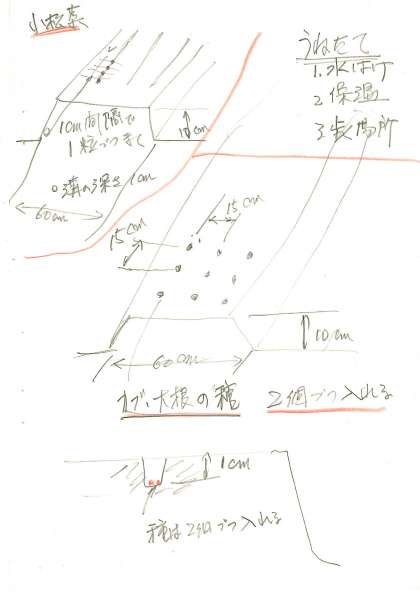 小松菜
うねたて
1.水はけ
2 保温
3
10cm間隔で
1粒づつまく
10cm
○溝の深さ1cm
60cm
15cm
15cm
10cm
60cm
カブ、大根の種 2個づつ入れる
1cm
種は2個づつ入れる